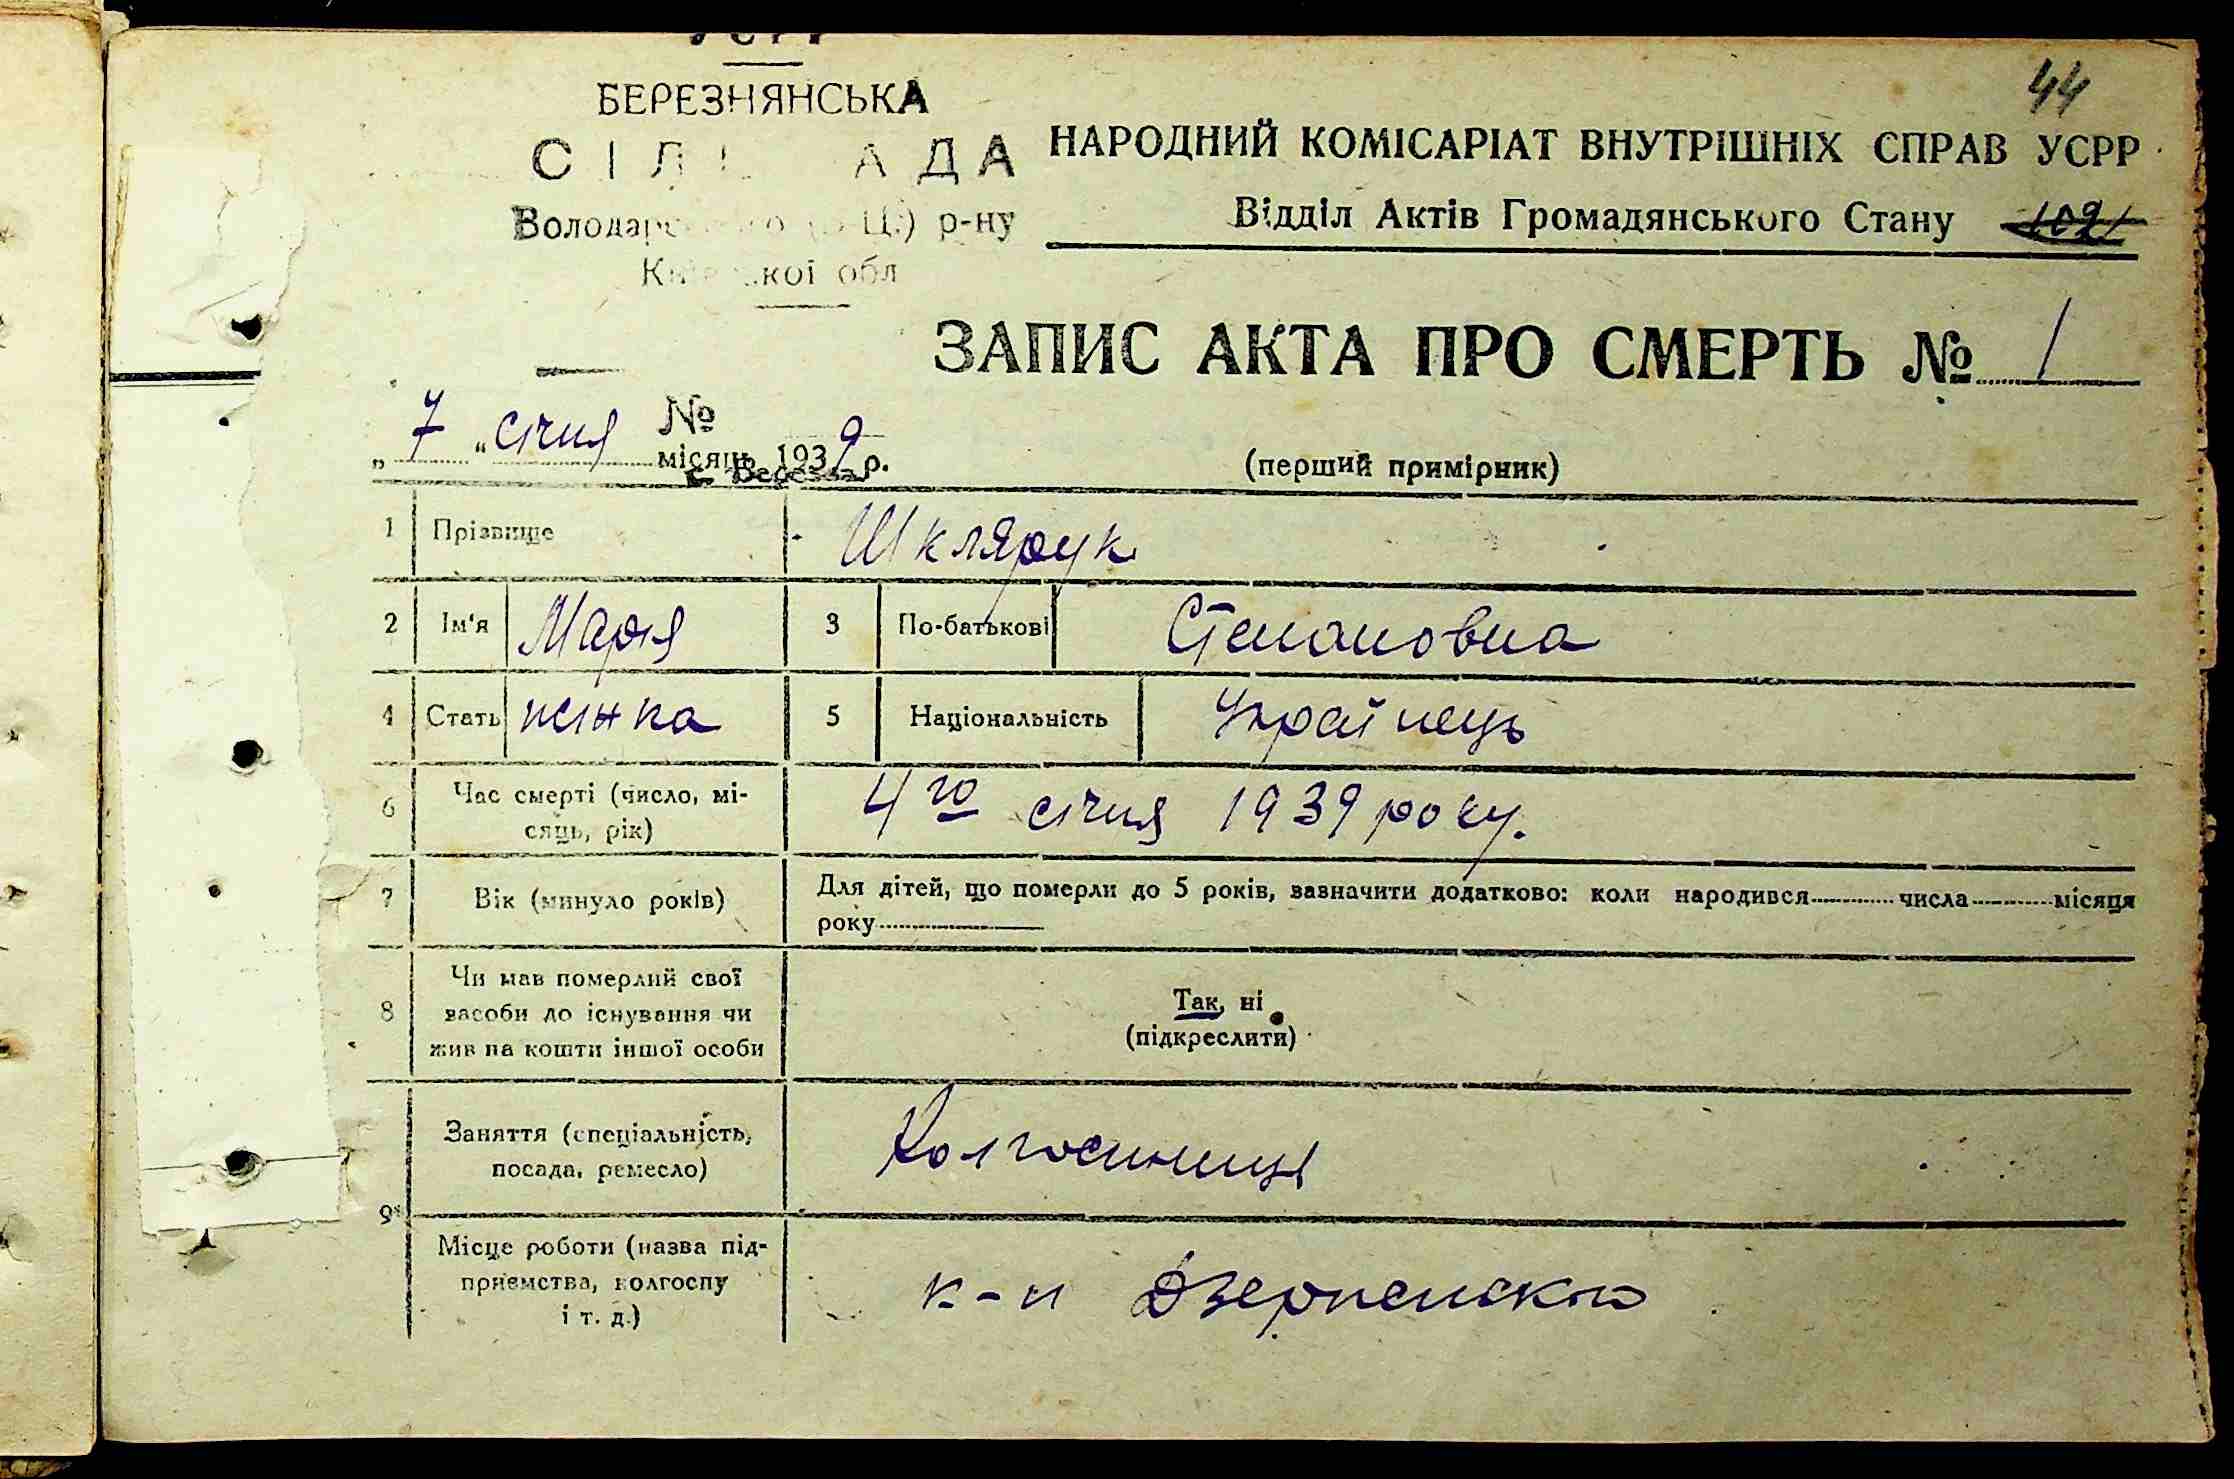 УСРР
44
БЕРЕЗНЯНСЬКА
НАРОДНИЙ КОМІСАРІАТ ВНУТРІШНІХ СПРАВ УСРР
Володарського р-ну
Відділ Актів Громадянського Стану
Київської обл
ЗАПИС АКТА ПРО СМЕРТЬ № 1
№
„ 7 " січня місяць 1939 р.
(перший примірник)
1 Прізвище Шклярук
2 Ім'я Марія 3 По-батькові Степановна
4 Стать жінка 5 Національність Українець
6 Час смерті (число, мі-
сяць, рік)
4го січня 1939 року.
7 Вік (минуло років)
Для дітей, що померли до 5 років, зазначити додатково: коли народився числа місяця
року
8 Чи мав померлий свої
засоби до існування чи
жив на кошти іншої особи
Так, ні
(підкреслити)
9 Заняття (спеціальність,
посада, ремесло)
Колгоспниця
Місце роботи (назва під-
приємства, колгоспу
і т. д.)